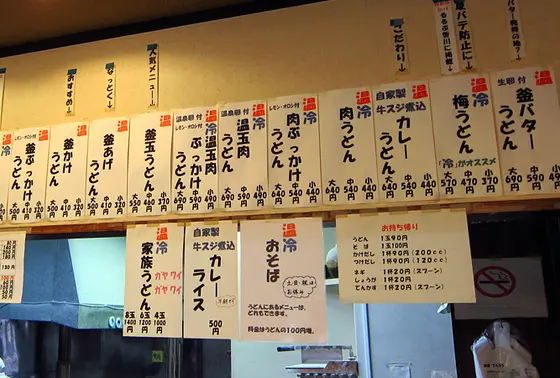 バター発祥の地?
↓
夏バテ防止に
↓
るるぶ香川に掲載
↓
こだわり
↓
人気メニュー
↓
なっとく
↓
おすすめ
↓
生卵付 温
釜バター
うどん
大 中 小
690 590 520
温 冷
梅うどん
「冷」がオススメ
大 中 小
570 470 370
自家製 温
牛スジ煮込 冷
カレー
うどん
大 中 小
640 540 440
温 冷
肉うどん
大 中 小
640 540 490
レモン・オロシ付 温 冷
肉ぶっかけ
うどん
大 中 小
640 540 440
温泉卵付 温
温玉肉
うどん
大 中 小
690 590 490
温泉卵付
レモン・オロシ付 温 冷
温玉肉
ぶっかけ
うどん
大 中 小
690 590 490
温
釜玉うどん
大 中 小
550 460 370
温
釜あげ
うどん
大 中 小
500 410 320
温
釜かけ
うどん
大 中 小
500 410 320
レモン・オロシ付 温
釜ぶっかけ
うどん
大 中 小
500 410 320
温 冷
お持ち帰り
うどん 1玉90円
そば 1玉100円
かけだし 1杯90円(200cc)
つけだし 1杯90円(120cc)
ネギ 1杯20円(スプーン)
しょうが 1杯20円
てんかす 1杯20円(スプーン)
温 冷
おそば
土・日・祝は
お休み
うどんにあるメニューは、
どれもできます。
料金はうどんの100円増。
自家製
牛スジ煮込
カレー
ライス
500円
温
家族うどん
ガヤ ワイ
ガヤ ワイ
8玉 6玉 4玉
1400円 1200円 1000円